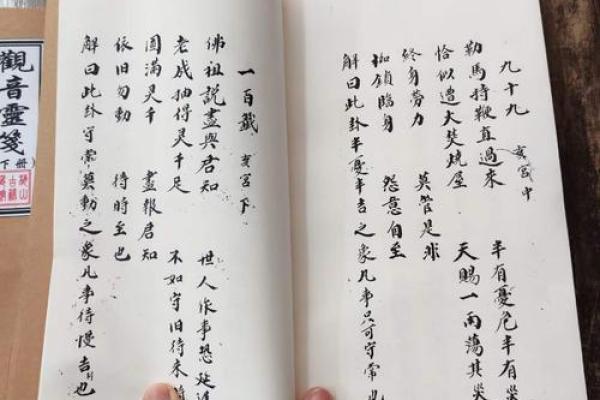 九十九 亥宮中
勒馬持鞭直過来 半有憂危半有災
恰似遭火焚燒屋 天賜一雨蕩其災
終身勞力 莫管是非
枷鎖臨身 怨意自至
解曰此卦半憂半吉之象凡事只可守常也
一百籤 亥宮下
佛祖説盡與君知 世人作事恐延
老成抽得灵千足 不如守旧待来
圓滿灵千 盡報君知
依旧勿動 待時至也
解曰此卦守常動之象凡事待慢吉也
觀音靈箋
(下册)